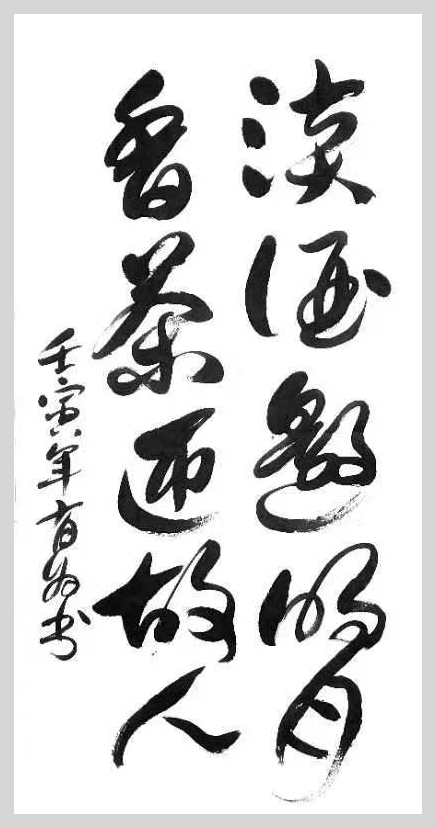 淡酒邀明月
香茶迎故人
壬寅年育为书